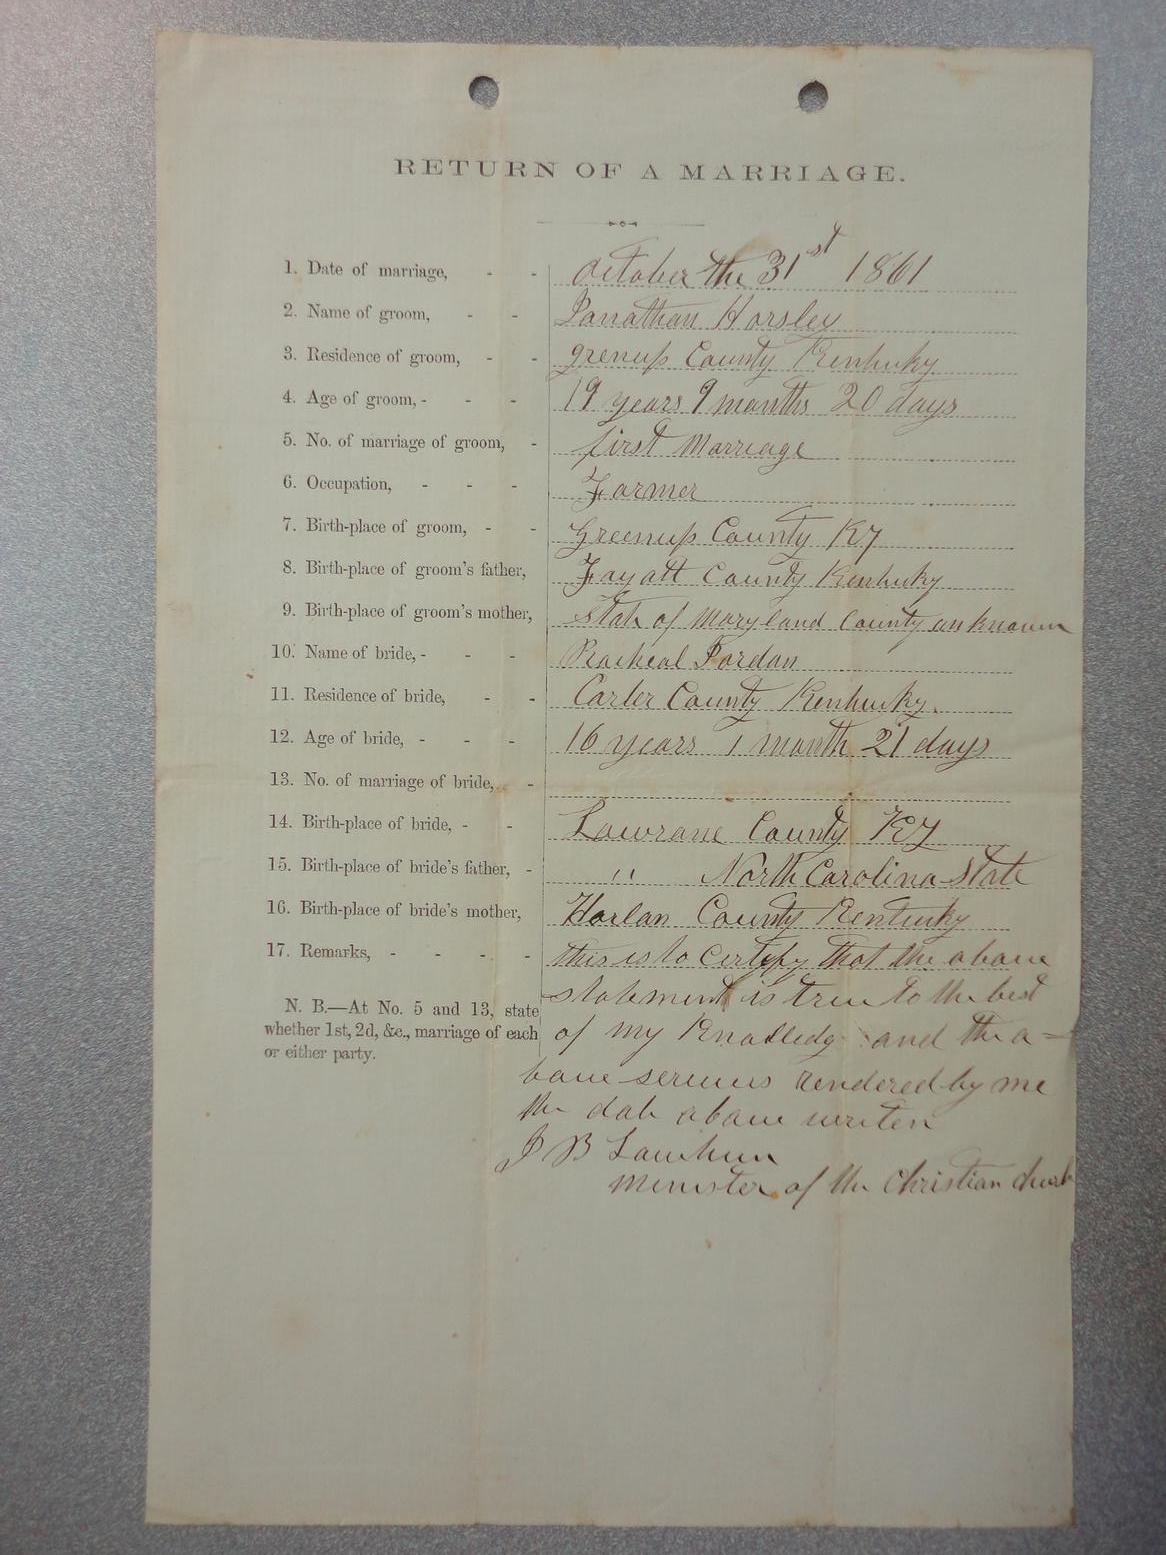 RETURN OF A MARRIAGE.
1. Date of marriage, - - October the 31st 1861
2. Name of groom, - - Jonathan Horsley
3. Residence of groom, - - grenup County Kentucky
4. Age of groom, - - - 19 years 9 months 20 days
5. No. of marriage of groom, - first Marriage
6. Occupation, - - - Farmer
7. Birth-place of groom, - - Greenup County Ky
8. Birth-place of groom's father, Fayatt County Kentucky
9. Birth-place of groom's mother, State of Maryland County unknown
10. Name of bride, - - - Jordan
11. Residence of bride, - - Carter County Kentucky.
12. Age of bride, - - - 16 years 1 month 21 days
13. No. of marriage of bride, - -
14. Birth-place of bride, - - County Ky
15. Birth-place of bride's father, - " North Carolina State
16. Birth-place of bride's mother, Harlan County Kentucky
17. Remarks, - - - - this is to Certify that the above
statement is true to the best
N. B.—At No. 5 and 13, state
whether 1st, 2d, &c., marriage of each
or either party.
of my and the a=
bove rendered by me
the date above writen
J B
Minister of the Christian church